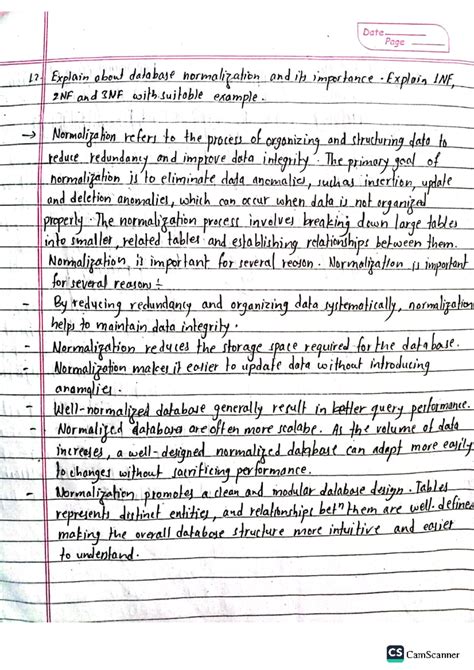 Date
Page
17. Explain about database normalization and its importance. Explain 1NF,
2NF and 3NF with suitable example.
→ Normalization refers to the process of organizing and structuring data to
reduce redundancy and improve data integrity. The primary goal of
normalization is to eliminate data anomalies, such as insertion, update
and deletion anomalies, which can occur when data is not organized
properly. The normalization process involves breaking down large tables
into smaller, related tables and establishing relationships between them.
Normalization, is important for several reason. Normalization is important
for several reasons :-
- By reducing redundancy and organizing data systematically, normalization
helps to maintain data integrity.
- Normalization reduces the storage space required for the database.
- Normalization makes it easier to update data without introducing
anomalies.
- Well-normalized database generally result in better query performance.
- Normalized databases are often more scalabe. As the volume of data
increases, a well-designed normalized database can adapt more easily
to changes without sacrificing performance.
- Normalization promotes a clean and modular database design. Tables
represents distinct entities, and relationships betn them are well-defined
making the overall database structure more intuitive and easier
to understand.
CS CamScanner